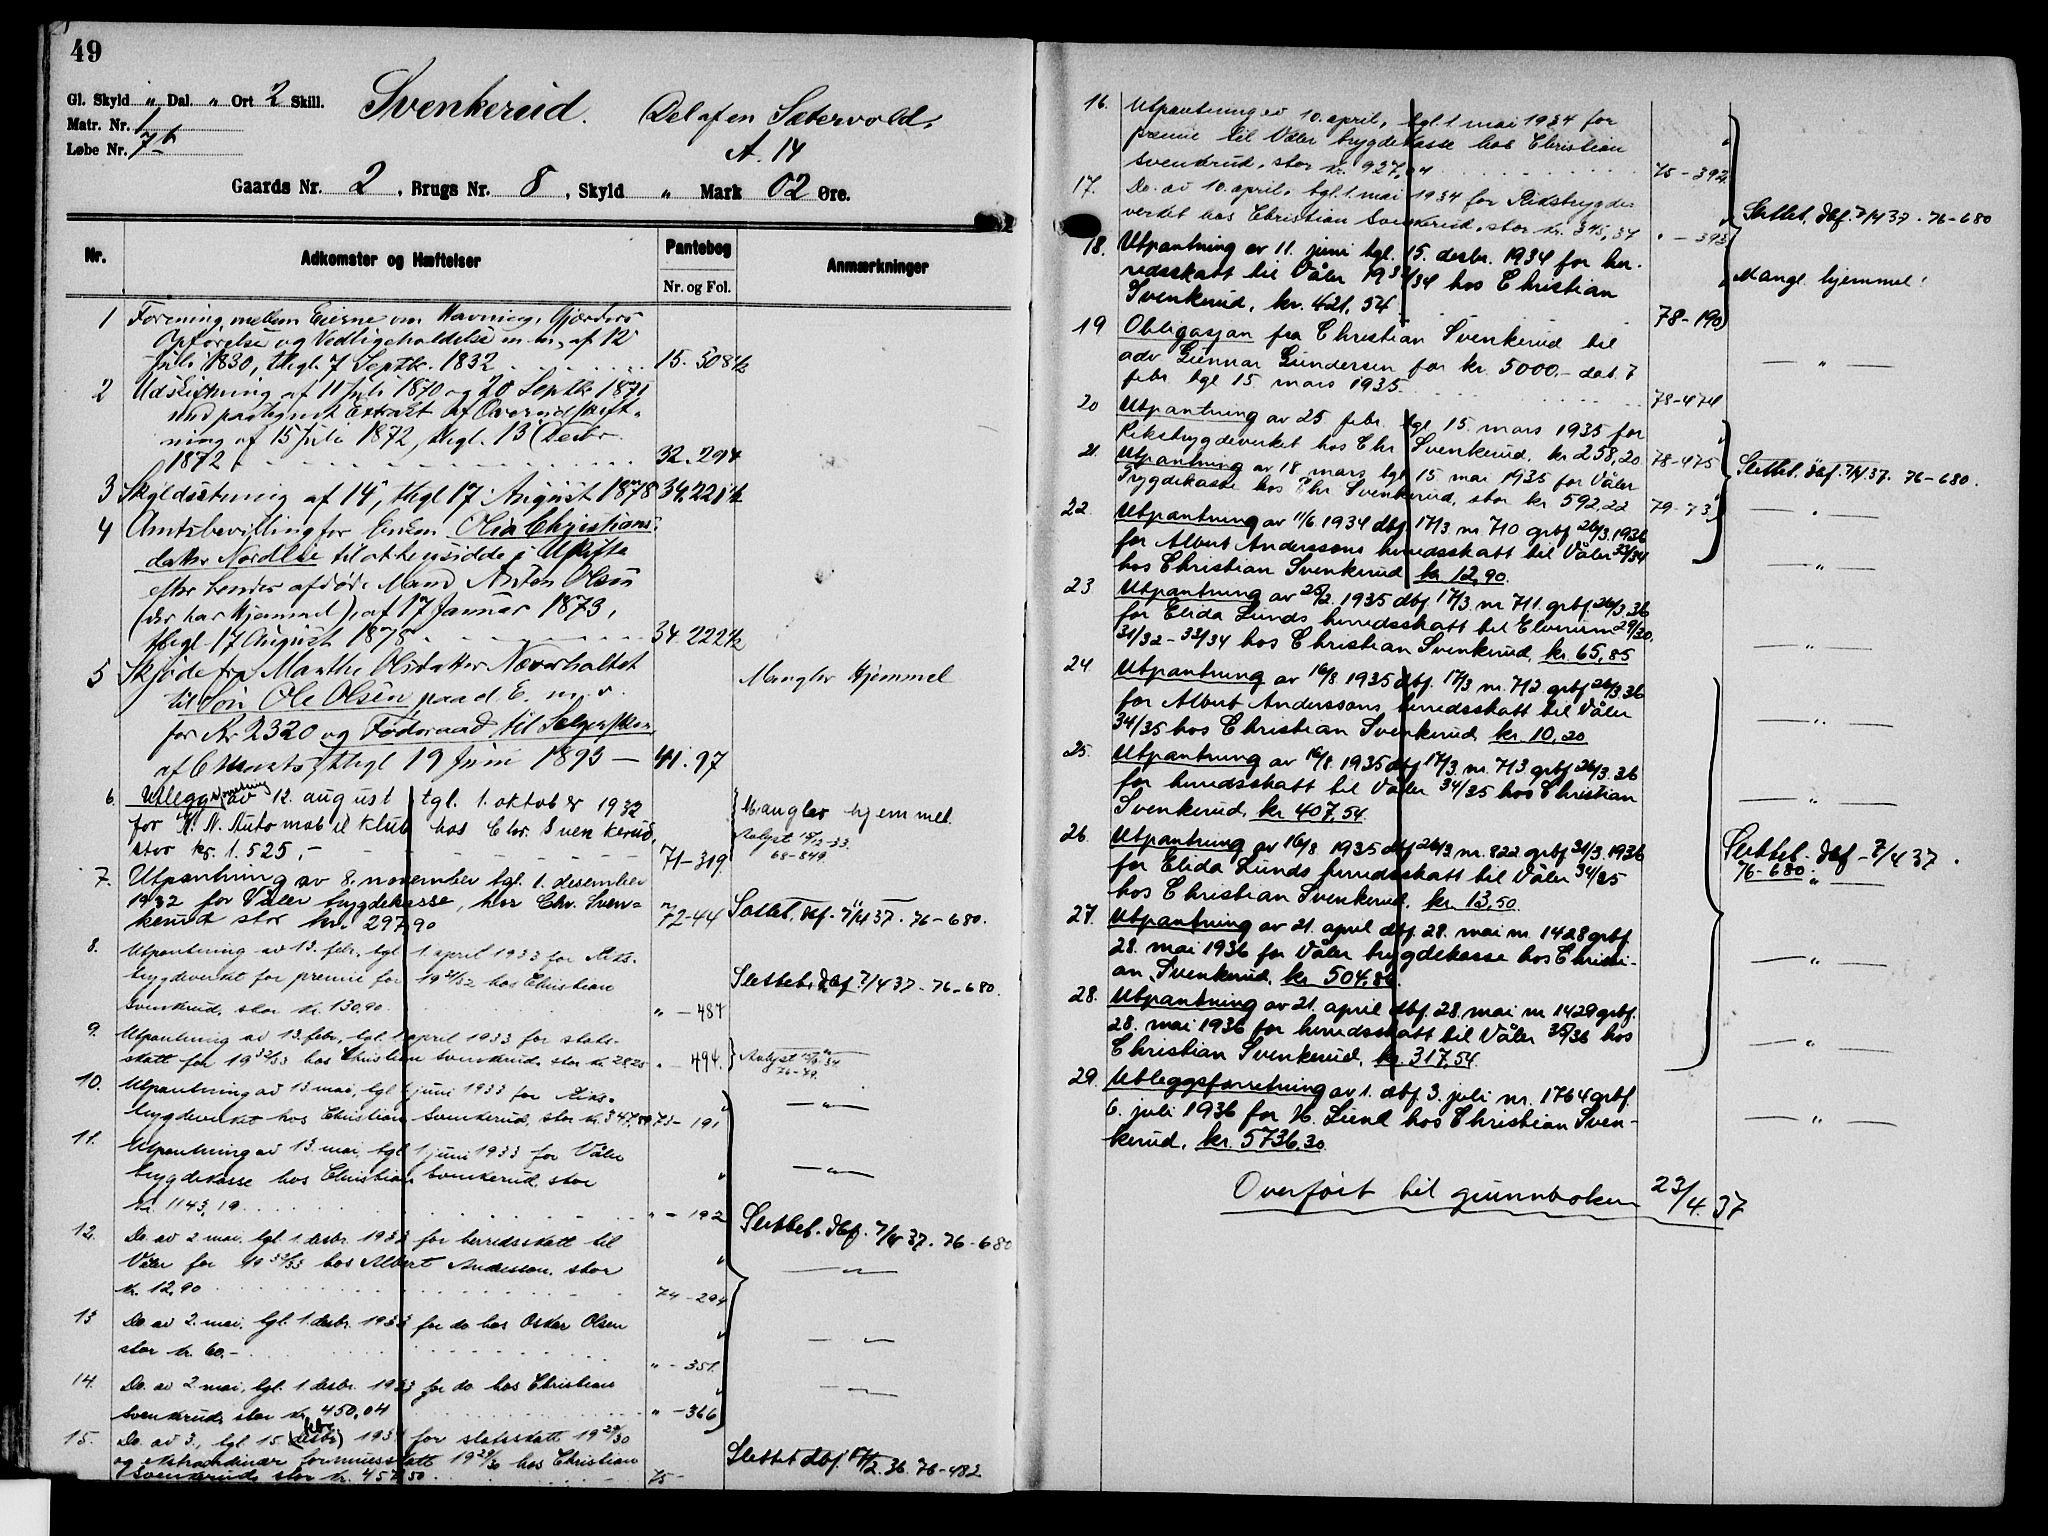 49
Gl. Skyld „ Dal. „ Ort 2 Skill.
Svenkerud. Del af en Sætervold,
Matr. Nr. 1
Løbe Nr. 7b
A. 14
Gaards Nr. 2, Brugs Nr. 8, Skyld „ Mark 02 Øre.
Nr. Adkomster og Hæftelser Pantebog Anmærkninger
Nr. og Fol.
1 Forening mellem Eierne om Havning, Gjærders
Opførelse og Vedligeholdelse m. m., af 12
Juli 1830, thgl. 7 Septbr. 1832 15. 508½
2 Udskiftning af 11 Juli 1870 og 20 Septbr 1871
med paategnet Extrakt af Overudskift-
ning af 15 Juli 1872, thgl. 13 Decbr.
1872 32. 294
3 Skyldsetning af 14, thgl 17 August 1878 34. 221½
4 Amtsbevilling for Enken Olea Christians-
datter Nordlie til at hensidde i Uskifte
efter hendes afdøde Mand Anton Olsen
(der har Hjemmel), af 17 Januar 1873,
thgl 17 August 1878 34 222½
5 Skjøde fra Marthe Olsdatter Næverholtet
til Søn Ole Olsen, paa d. E. m. v.
for Kr 2320 og Føderaad til Selgersken
af 6 Marts, thgl 19 Juni 1893 — 41. 97 Mangler Hjemmel
6. Utlegg av 12. august tgl. 1. oktober 1932
for K. N. Automobilklub hos Chr. Svenkerud,
stor kr. 1.525,- 71-319 Mangler hjemmel.
Avlyst 15/12-33.
68-849.
7. Utpantning av 8. november tgl. 1. desember
1932 for Våler trygdekasse, hos Chr. Sven-
kerud stor kr. 297,90 72-44 Slettet. dbf. 7/4 37. 76-680.
8. Utpantning av 13. febr. tgl. 1 april 1933 for Riks-
trygdeverket for premie for 1931/32 hos Christian
Svenkrud, stor kr. 130,90. „ - 487 Slettet. dbf. 7/4 37. 76-680.
9. Utpantning av 13. febr. tgl. 1 april 1933 for stats-
skatt for 1932/33 hos Christian Svenkrud, stor kr 28,20 „ - 494.
10. Utpantning av 13 mai, tgl 1 juni 1933 for Riks-
trygdeverket hos Christian Svenkerud, stor kr. 347,89 73-191 — „ —
11. Utpantning av 13. mai, tgl 1 juni 1933 for Våler
trygdekasse hos Christian Svenkerud, stor
kr. 1143,19 „ - 192 — „ —
12. Do. av 2 mai, tgl. 1. desbr. 1933 for herredsskatt til
Våler for 1932/33 hos Albert Andersson, stor
kr. 12,90 74-294 — „ —
Slettet. dbf. 7/4 37. 76-680
13 Do. av 2. mai, tgl. 1. desbr. 1933 for do hos Oskar Olsen
stor kr. 60.- „ - 351. — „ —
14. Do. av 2 mai, tgl. 1. desbr. 1933 for do. hos Christian
Svenkrud, stor kr. 450,04 „ - 366 — „ —
15. Do. av 3., tgl 15. (desbr) febr 1934 for statsskatt 1929/30
og ekstraordinær formuesskatt 1929/30 hos Christian
Svenkerud, stor kr. 457,50 75- Slettet dbf. 76-482
16. Utpantning av 10. april, tgl. 1. mai 1934 for
premie til Våler trygdekasse hos Christian
Svenkrud, stor kr. 927,04 75-392
17. Do. av 10. april, tgl. 1. mai 1934 for Rikstrygde-
verket hos Christian Svenkrud, stor kr. 345,34 „ - 393 Slettet. dbf. 7/4 37. 76-680
18. Utpantning av 11. juni tgl. 15. desbr. 1934 for her-
redsskatt til Våler 1933/34 hos Christian
Svenkerud, kr. 421,54 78-190 Mangl. hjemmel!
19 Obligasjon fra Christian Svenkerud til
adv. Gunnar Gundersen for kr. 5000.- dat. 7
febr. tgl 15 mars 1935 78-474 — „ —
20 Utpantning av 25 febr. tgl. 15. mars 1935 for
Rikstrygdeverket hos Chr Svenkerud, kr 258,20 78-475
21. Utpantning av 18 mars tgl 15 mai 1935 for Våler
Trygdekasse hos Chr. Svenkerud, stor kr 592,22 79-73 Slettet. dbf. 7/4 37. 76-680.
22. Utpantning av 11/6 1934 dbf. 17/3 nr 710 grbf 26/3. 1936
for Albert Anderssons herredsskatt til Våler 33/34
hos Christian Svenkerud kr. 12,90. — „ —
23. Utpantning av 25/2. 1935 dbf. 17/3. nr 711. grbf 26/3 36
for Elida Lunds herredsskatt til Elverum 29/30,
31/32 - 33/34 hos Christian Svenkerud, kr. 65,85 — „ —
24. Utpantning av 16/8. 1935 dbf. 17/3 nr. 712. grbf 26/3 36
for Albert Anderssons herredsskatt til Våler
34/35 hos Christian Svenkerud, kr. 10,20 — „ —
25. Utpantning av 16/8. 1935 dbf 17/3. nr. 713. grbf 26/3. 36
for herredsskatt til Våler 34/35 hos Christian
Svenkerud, kr 407,54. — „ —
26. Utpantning av 16/8. 1935 dbf 26/3 nr. 822 grbf 31/3. 1936
for Elida Lunds herredsskatt til Våler 34/35
hos Christian Svenkerud, kr. 13,50. Slettet. dbf - 7/4 37.
76-680. — „ —
27. Utpantning av 21. april dbf 28. mai nr. 1428 grbf.
28. mai 1936 for Våler trygdekasse hos Christi-
an Svenkerud, kr. 504,84. — „ —
28. Utpantning av 21. april dbf. 28. mai nr 1429 grbf.
28. mai 1936 for herredsskatt til Våler 35/36 hos
Christian Svenkerud, kr. 317,54. — „ —
29. Utleggsforretning av 1. dbf. 3. juli nr. 1764 grbf.
6. juli 1936 for H. Lund hos Christian Sven-
kerud, kr. 5736,30 — „ —
Overført til grunnboken 23/4.37